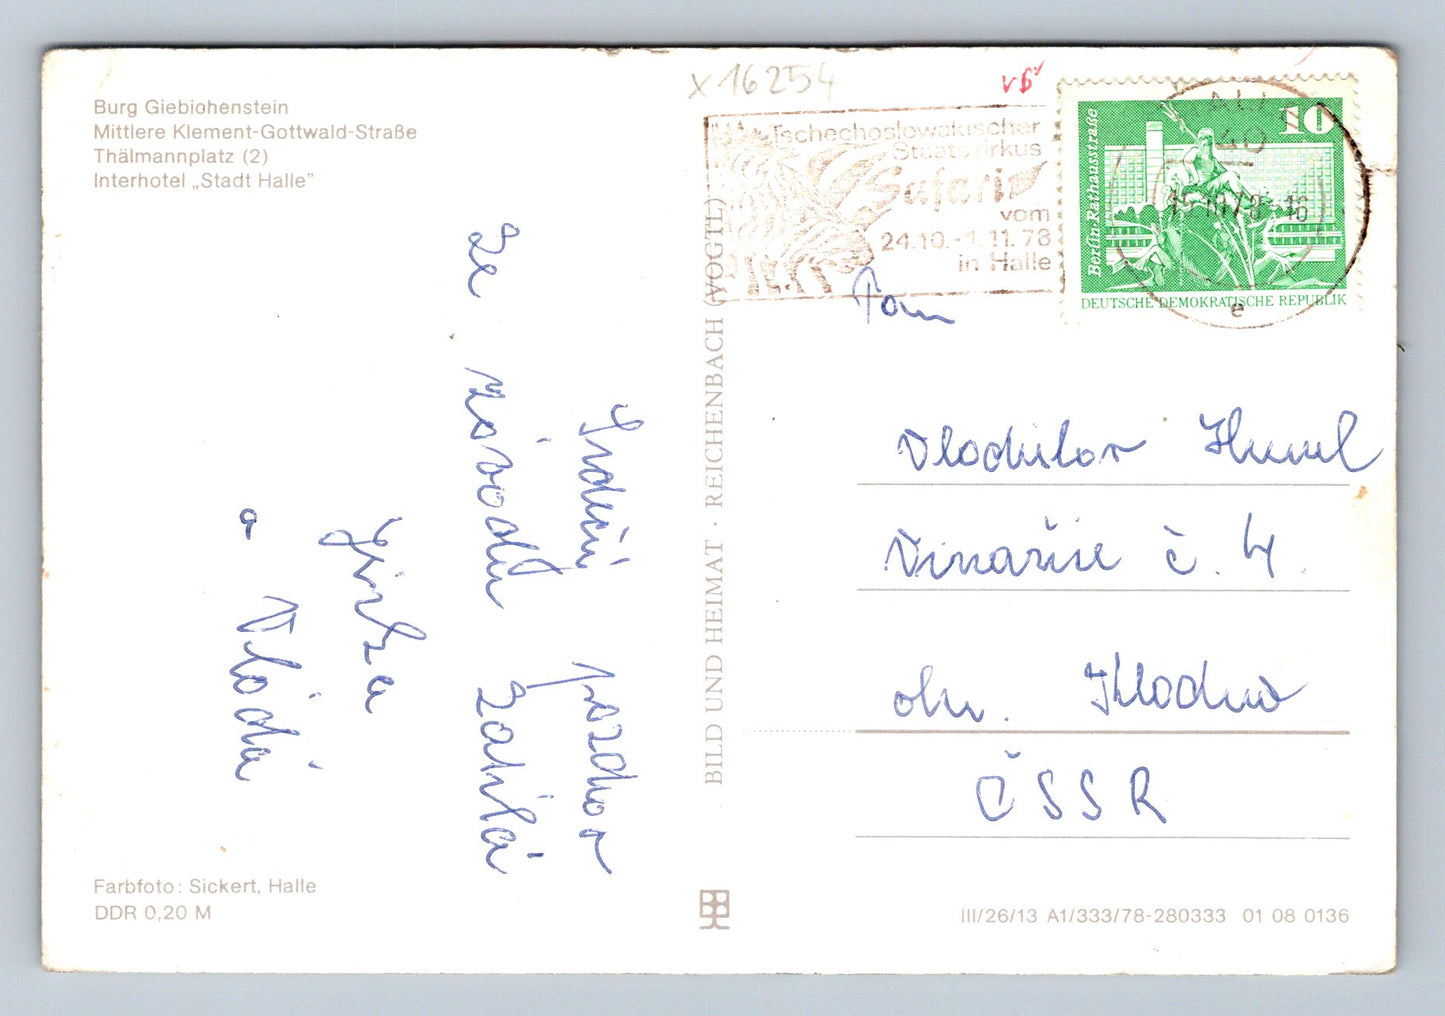 Burg Giebiohenstein
Mittlere Klement-Gottwald-Straße
Thälmannplatz (2)
Interhotel „Stadt Halle"
Srdečný pozdrav
ze závodu zasílá
Jirka
a Vláďa
Farbfoto: Sickert, Halle
DDR 0,20 M
BILD UND HEIMAT · REICHENBACH (VOGTL)
x 16254
Tschechoslowakischer
Staatszirkus
Safari
vom
24.10.-1.11.78
in Halle
HALLE
40
15.10.78-16
e
10
Berlin Rathausstraße
DEUTSCHE DEMOKRATISCHE REPUBLIK
Pan
Vladislav
Vinařice č. 4
okr. Kladno
ČSSR
III/26/13 A1/333/78-280333 01 08 0136